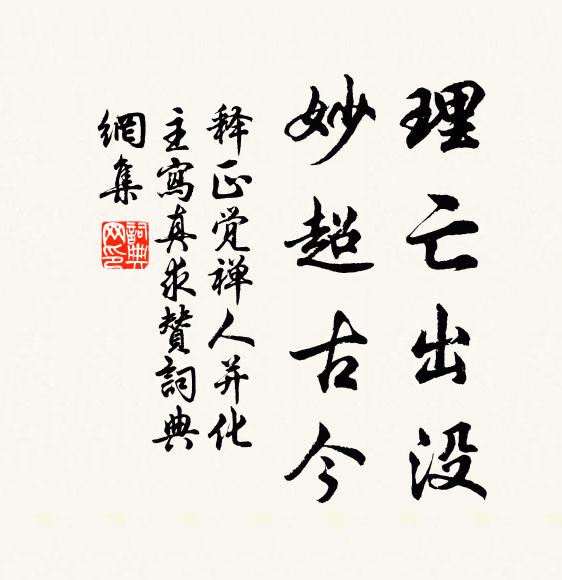 理亡出没
妙超古今
释正觉禅人并化
主寫真求賛詞典
網集
詞典网印